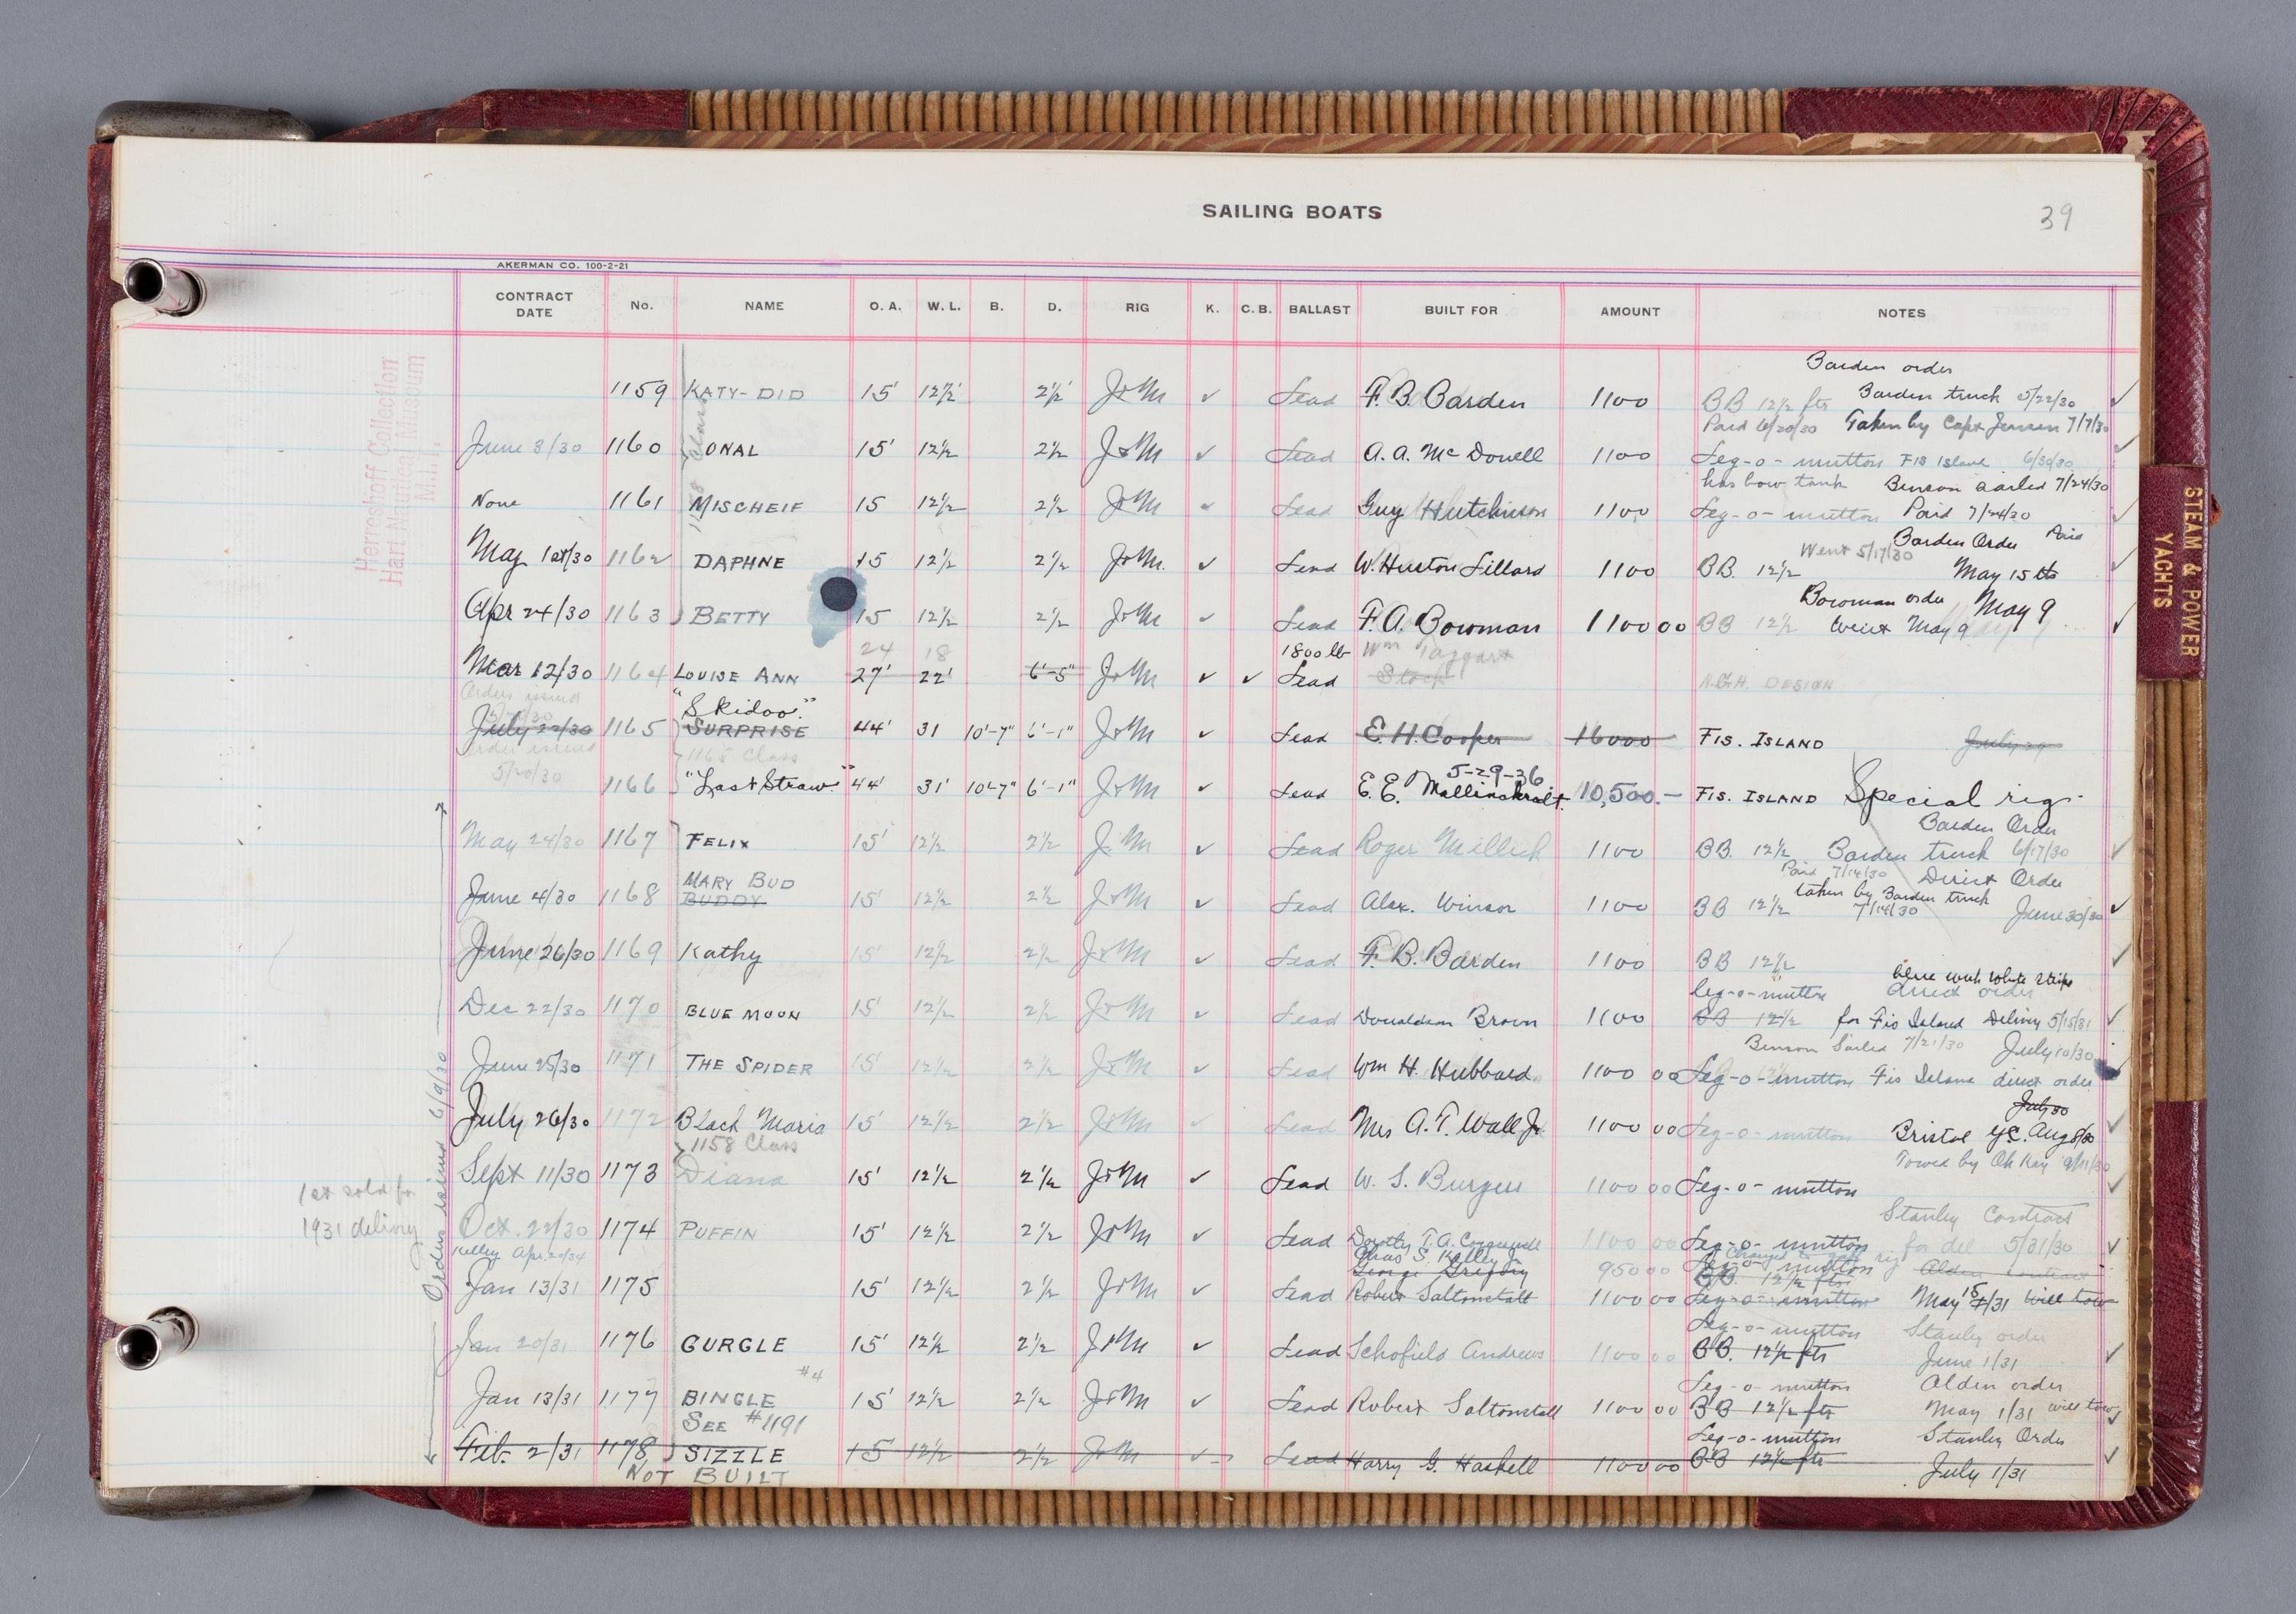 SAILING BOATS
39
AKERMAN CO. 100-2-21
CONTRACT DATE No. NAME O. A. W. L. B. D. RIG K. C. B. BALLAST BUILT FOR AMOUNT NOTES
Herreshoff Collection
Hart Nautical Museum
M.I.T.
STEAM & POWER
YACHTS
Barden order
1159 KATY-DID 15' 12½' 2½' J & M ✓ Lead F. B. Barden 1100 BB 12½ ftr Barden truck 5/22/30 ✓
Paid 6/20/30 Taken by Capt Jensen 7/7/30
June 3/30 1160 ONAL 15' 12½ 2½ J & M ✓ Lead A. A. McDonell 1100 Leg-o-mutton FIS Island 6/30/30 ✓
has bow tank Benson sailed 7/24/30
None 1161 MISCHEIF 15 12½ 2½ J & M ✓ Lead Guy Hutchinson 1100 Leg-o-mutton Paid 7/24/30 ✓
Went 5/17/30 Barden Order Paid
May 1st/30 1162 DAPHNE 15 12½ 2½ J & M. ✓ Lead W. Huston Lillard 1100 BB. 12½ May 15th ✓
Bowman order May 9
Apr 24/30 1163 BETTY 15 12½ 2½ J & M ✓ Lead F. A. Bowman 1100 00 BB 12½ Went May 9 ✓
24 18 1800 lb Wm Taggart
Mar 12/30 1164 LOUISE ANN 27' 22' 6'-5" J & M ✓ ✓ Lead Stock N.G.H. DESIGN
Order issued
5/20/30 "Skidoo"
July 22/30 1165 SURPRISE 44' 31 10'-7" 6'-1" J & M ✓ Lead E. H. Cooper 16000 FIS. ISLAND July 29
Order issued 1165 Class
5/20/30 5-29-36
1166 "Last Straw" 44' 31' 10'-7" 6'-1" J & M ✓ Lead E. E. Mallinckrodt. 10,500.- FIS. ISLAND Special rig-
Barden Order
May 24/30 1167 FELIX 15' 12½ 2½ J & M ✓ Lead Roger Millick 1100 BB. 12½ Barden truck 6/17/30 ✓
MARY BUD Paid 7/14/30 Direct Order
taken by Barden truck
June 4/30 1168 BUDDY 15' 12½ 2½ J & M ✓ Lead Alex. Winsor 1100 BB 12½ 7/14/30 June 30/30 ✓
June 26/30 1169 Kathy 15' 12½ 2½ J & M ✓ Lead F. B. Barden 1100 BB 12½ ✓
blue with white stripe
leg-o-mutton direct order
Dec 22/30 1170 BLUE MOON 15' 12½ 2½ J & M ✓ Lead Donaldson Brown 1100 BB 12½ for Fis Island Delivery 5/15/31 ✓
Benson Sailed 7/21/30 July 10/30
June 25/30 1171 THE SPIDER 15' 12½ 2½ J & M ✓ Lead Wm H. Hubbard 1100 00 Leg-o-mutton Fis Island direct order
July 30
July 26/30 1172 Black Maria 15' 12½ 2½ J & M ✓ Lead Mrs A. T. Wall Jr 1100 00 Leg-o-mutton Bristol YC. Aug 8/30 ✓
1158 Class Towed by Oh Kay 9/11/30
Sept 11/30 1173 Diana 15' 12½ 2½ J & M ✓ Lead W. S. Burgess 1100 00 Leg-o-mutton ✓
1st sold for
1931 delivery
Order issued 6/9/30
Stanley Contract
Oct. 22/30 1174 PUFFIN 15' 12½ 2½ J & M ✓ Lead Dorothy T. A. 1100 00 Leg-o-mutton for del 5/31/30 ✓
Kelley Apr. 20/34 Chas S. Kelley Jr Changed to gaff rig
George Gregory 950 00 Leg-o-mutton Alden contract
BB. 12½ ftr
Jan 13/31 1175 15' 12½ 2½ J & M ✓ Lead Robert Saltonstall 1100 00 Leg-o-mutton May 15/31 will tow
Leg-o-mutton Stanley order
Jan 20/31 1176 GURGLE 15' 12½ 2½ J & M ✓ Lead Schofield Andrews 1100 00 BB. 12½ ftr June 1/31 ✓
#4 Leg-o-mutton Alden order
Jan 13/31 1177 BINGLE 15' 12½ 2½ J & M ✓ Lead Robert Saltonstall 1100 00 BB 12½ ftr May 1/31 will tow ✓
SEE #1191 Leg-o-mutton Stanley Order
Feb. 2/31 1178 SIZZLE 15' 12½ 2½ J & M ✓ Lead Harry G. Haskell 1100 00 BB 12½ ftr July 1/31 ✓
NOT BUILT